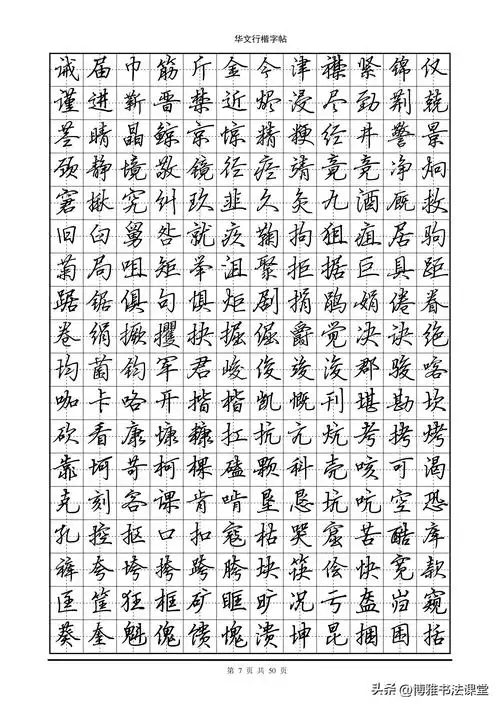 华文行楷字帖
诫届巾筋斤金今津襟紧锦仅
谨进靳晋禁近烬浸尽劲荆兢
茎睛晶鲸京惊精粳经井警景
颈静境敬镜径痉靖竟竞净炯
窘揪究纠玖韭久灸九酒厩救
旧臼舅咎就疚鞠拘狙疽居驹
菊局咀矩举沮聚拒据巨具距
踞锯俱句惧炬剧捐鹃娟倦眷
卷绢撅攫抉掘倔爵觉决诀绝
均菌钧军君峻俊竣浚郡骏喀
咖卡咯开揩楷凯慨刊堪勘坎
砍看康慷糠扛抗亢炕考拷烤
靠坷苛柯棵磕颗科壳咳可渴
克刻客课肯啃垦恳坑吭空恐
孔控抠口扣寇枯哭窟苦酷库
裤夸垮挎跨胯块筷侩快宽款
匡筐狂框矿眶旷况亏盔岿窥
葵奎魁傀馈愧溃坤昆捆困括
第 7 页 共 50 页
头条 @博雅书法课堂